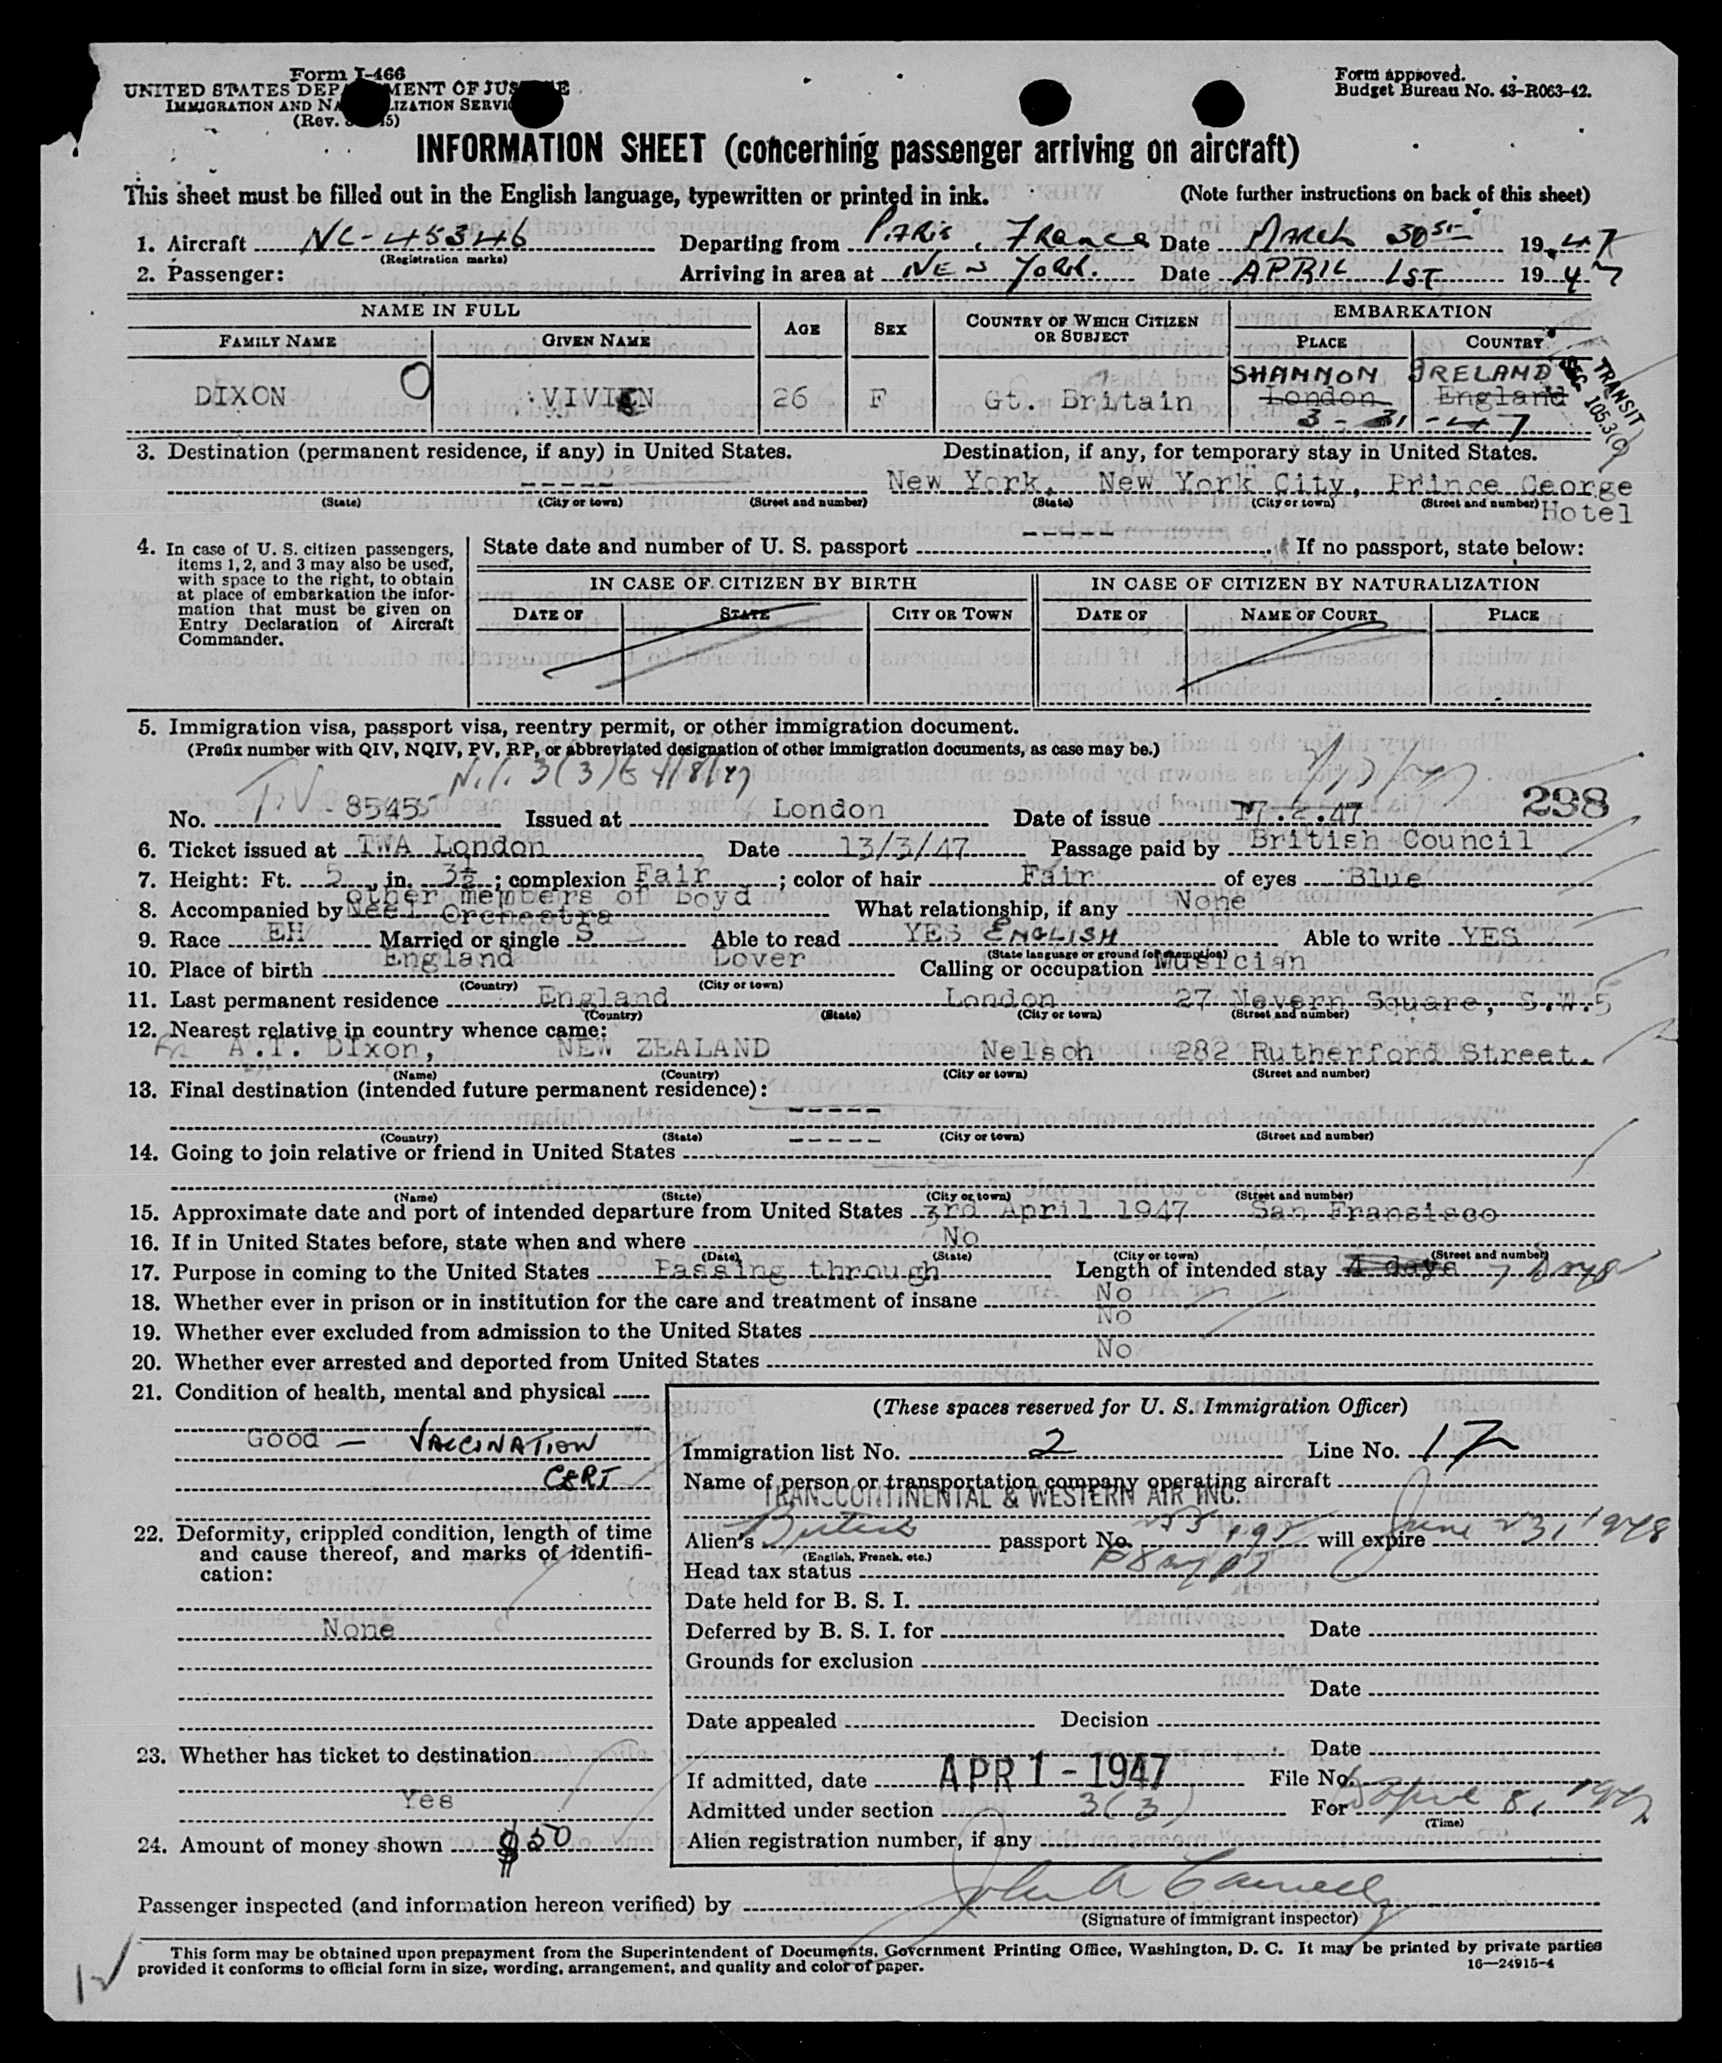 Form I-466
UNITED STATES DEPARTMENT OF JUSTICE
IMMIGRATION AND NATURALIZATION SERVICE
(Rev. 45)
Form approved.
Budget Bureau No. 43-R063-42.
INFORMATION SHEET (concerning passenger arriving on aircraft)
This sheet must be filled out in the English language, typewritten or printed in ink. (Note further instructions on back of this sheet)
1. Aircraft NC-45346 Departing from PARIS, FRANCE Date MARCH 30 1947
(Registration marks)
2. Passenger: Arriving in area at NEW YORK. Date APRIL 1ST 1947
NAME IN FULL AGE SEX COUNTRY OF WHICH CITIZEN OR SUBJECT EMBARKATION
FAMILY NAME GIVEN NAME PLACE COUNTRY
SHANNON IRELAND
DIXON VIVIEN 26 F Gt. Britain London England
3-31-47
SEC 105.3(c) TRANSIT
3. Destination (permanent residence, if any) in United States. Destination, if any, for temporary stay in United States.
----- New York, New York City, Prince George Hotel
(State) (City or town) (Street and number) (State) (City or town) (Street and number)
4. In case of U. S. citizen passengers, items 1, 2, and 3 may also be used, with space to the right, to obtain at place of embarkation the information that must be given on Entry Declaration of Aircraft Commander.
State date and number of U. S. passport ----- If no passport, state below:
IN CASE OF CITIZEN BY BIRTH IN CASE OF CITIZEN BY NATURALIZATION
DATE OF STATE CITY OR TOWN DATE OF NAME OF COURT PLACE
5. Immigration visa, passport visa, reentry permit, or other immigration document.
(Prefix number with QIV, NQIV, PV, RP, or abbreviated designation of other immigration documents, as case may be.)
3(3) 4/8/47
No. TV-8545 Issued at London Date of issue 17.2.47 298
6. Ticket issued at TWA London Date 13/3/47 Passage paid by British Council
7. Height: Ft. 5, in. 3½; complexion Fair; color of hair Fair of eyes Blue
8. Accompanied by other members of Boyd Neel Orchestra What relationship, if any None
9. Race EH Married or single S Able to read YES ENGLISH Able to write YES
(State language or ground for exemption)
10. Place of birth England Dover Calling or occupation Musician
(Country) (City or town)
11. Last permanent residence England London 27 Nevern Square, S.W.5
(Country) (State) (City or town) (Street and number)
12. Nearest relative in country whence came:
Fa A.T. Dixon, NEW ZEALAND Nelson 282 Rutherford Street.
(Name) (Country) (City or town) (Street and number)
13. Final destination (intended future permanent residence):
-----
(Country) (State) (City or town) (Street and number)
14. Going to join relative or friend in United States -----
(Name) (State) (City or town) (Street and number)
15. Approximate date and port of intended departure from United States 3rd April 1947 San Fransisco
16. If in United States before, state when and where No
(Date) (State) (City or town) (Street and number)
17. Purpose in coming to the United States Passing through Length of intended stay 4 days 7 Days
18. Whether ever in prison or in institution for the care and treatment of insane No
19. Whether ever excluded from admission to the United States No
20. Whether ever arrested and deported from United States No
21. Condition of health, mental and physical
Good — VACCINATION CERT
22. Deformity, crippled condition, length of time and cause thereof, and marks of identification:
None
23. Whether has ticket to destination
Yes
24. Amount of money shown $50
(These spaces reserved for U. S. Immigration Officer)
Immigration list No. 2 Line No. 17
Name of person or transportation company operating aircraft
TRANSCONTINENTAL & WESTERN AIR INC.
Alien's British passport No. will expire June 23, 1948
(English, French, etc.)
Head tax status
Date held for B. S. I.
Deferred by B. S. I. for Date
Grounds for exclusion
Date
Date appealed Decision
Date
If admitted, date APR 1 - 1947 File No.
Admitted under section 3(3) For to April 8, 1947
(Time)
Alien registration number, if any
Passenger inspected (and information hereon verified) by
(Signature of immigrant inspector)
This form may be obtained upon prepayment from the Superintendent of Documents, Government Printing Office, Washington, D. C. It may be printed by private parties
provided it conforms to official form in size, wording, arrangement, and quality and color of paper. 16—24915-4